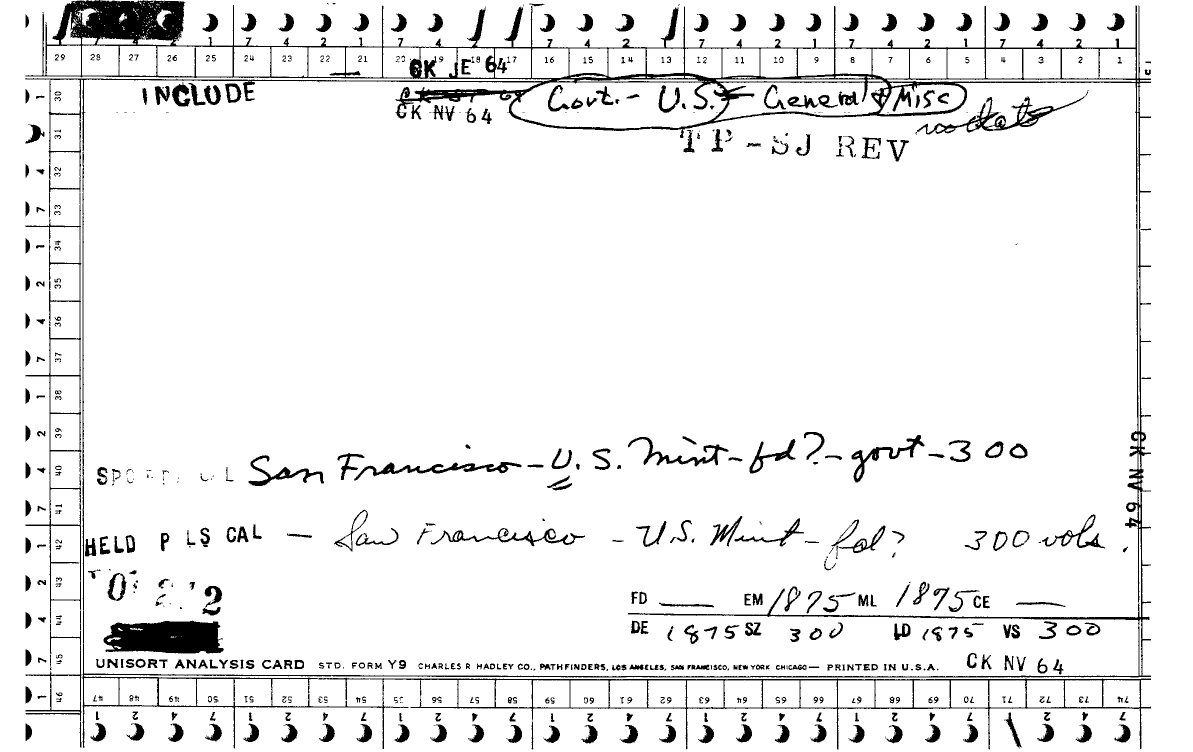 7 4 2 1 7 4 2 1 7 4 2 1 7 4 2 1 7 4 2 1 7 4 2 1
29 28 27 26 25 24 23 22 21 20 19 18 17 16 15 14 13 12 11 10 9 8 7 6 5 4 3 2 1
CK JE 64
INCLUDE
Govt. - U.S. - General & Misc
CK NV 64
no date
TP - SJ REV
1 30
31
4 32
7 33
1 34
2 35
4 36
7 37
1 38
2 39
4 40
7 41
1 42
2 43
4 44
7 45
1 46
San Francisco - U.S. Mint - fd? - govt - 300
CK NV 64
HELD P LS CAL — San Francisco - U.S. Mint - fd? 300 vols.
FD — EM 1875 ML 1875 CE —
DE 1875 SZ 300 LD 1875 VS 300
UNISORT ANALYSIS CARD STD. FORM Y9 CHARLES R HADLEY CO., PATHFINDERS, LOS ANGELES, SAN FRANCISCO, NEW YORK CHICAGO — PRINTED IN U.S.A.
CK NV 64
47 48 49 50 51 52 53 54 35 56 57 58 59 60 61 62 63 64 65 66 67 68 69 70 71 72 73 74
1 2 4 7 1 2 4 7 1 2 4 7 1 2 4 7 1 2 4 7 1 2 4 7 1 2 4 7